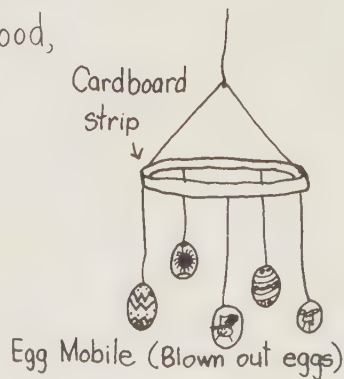 ood,
Cardboard
strip
Egg Mobile (Blown out eggs)